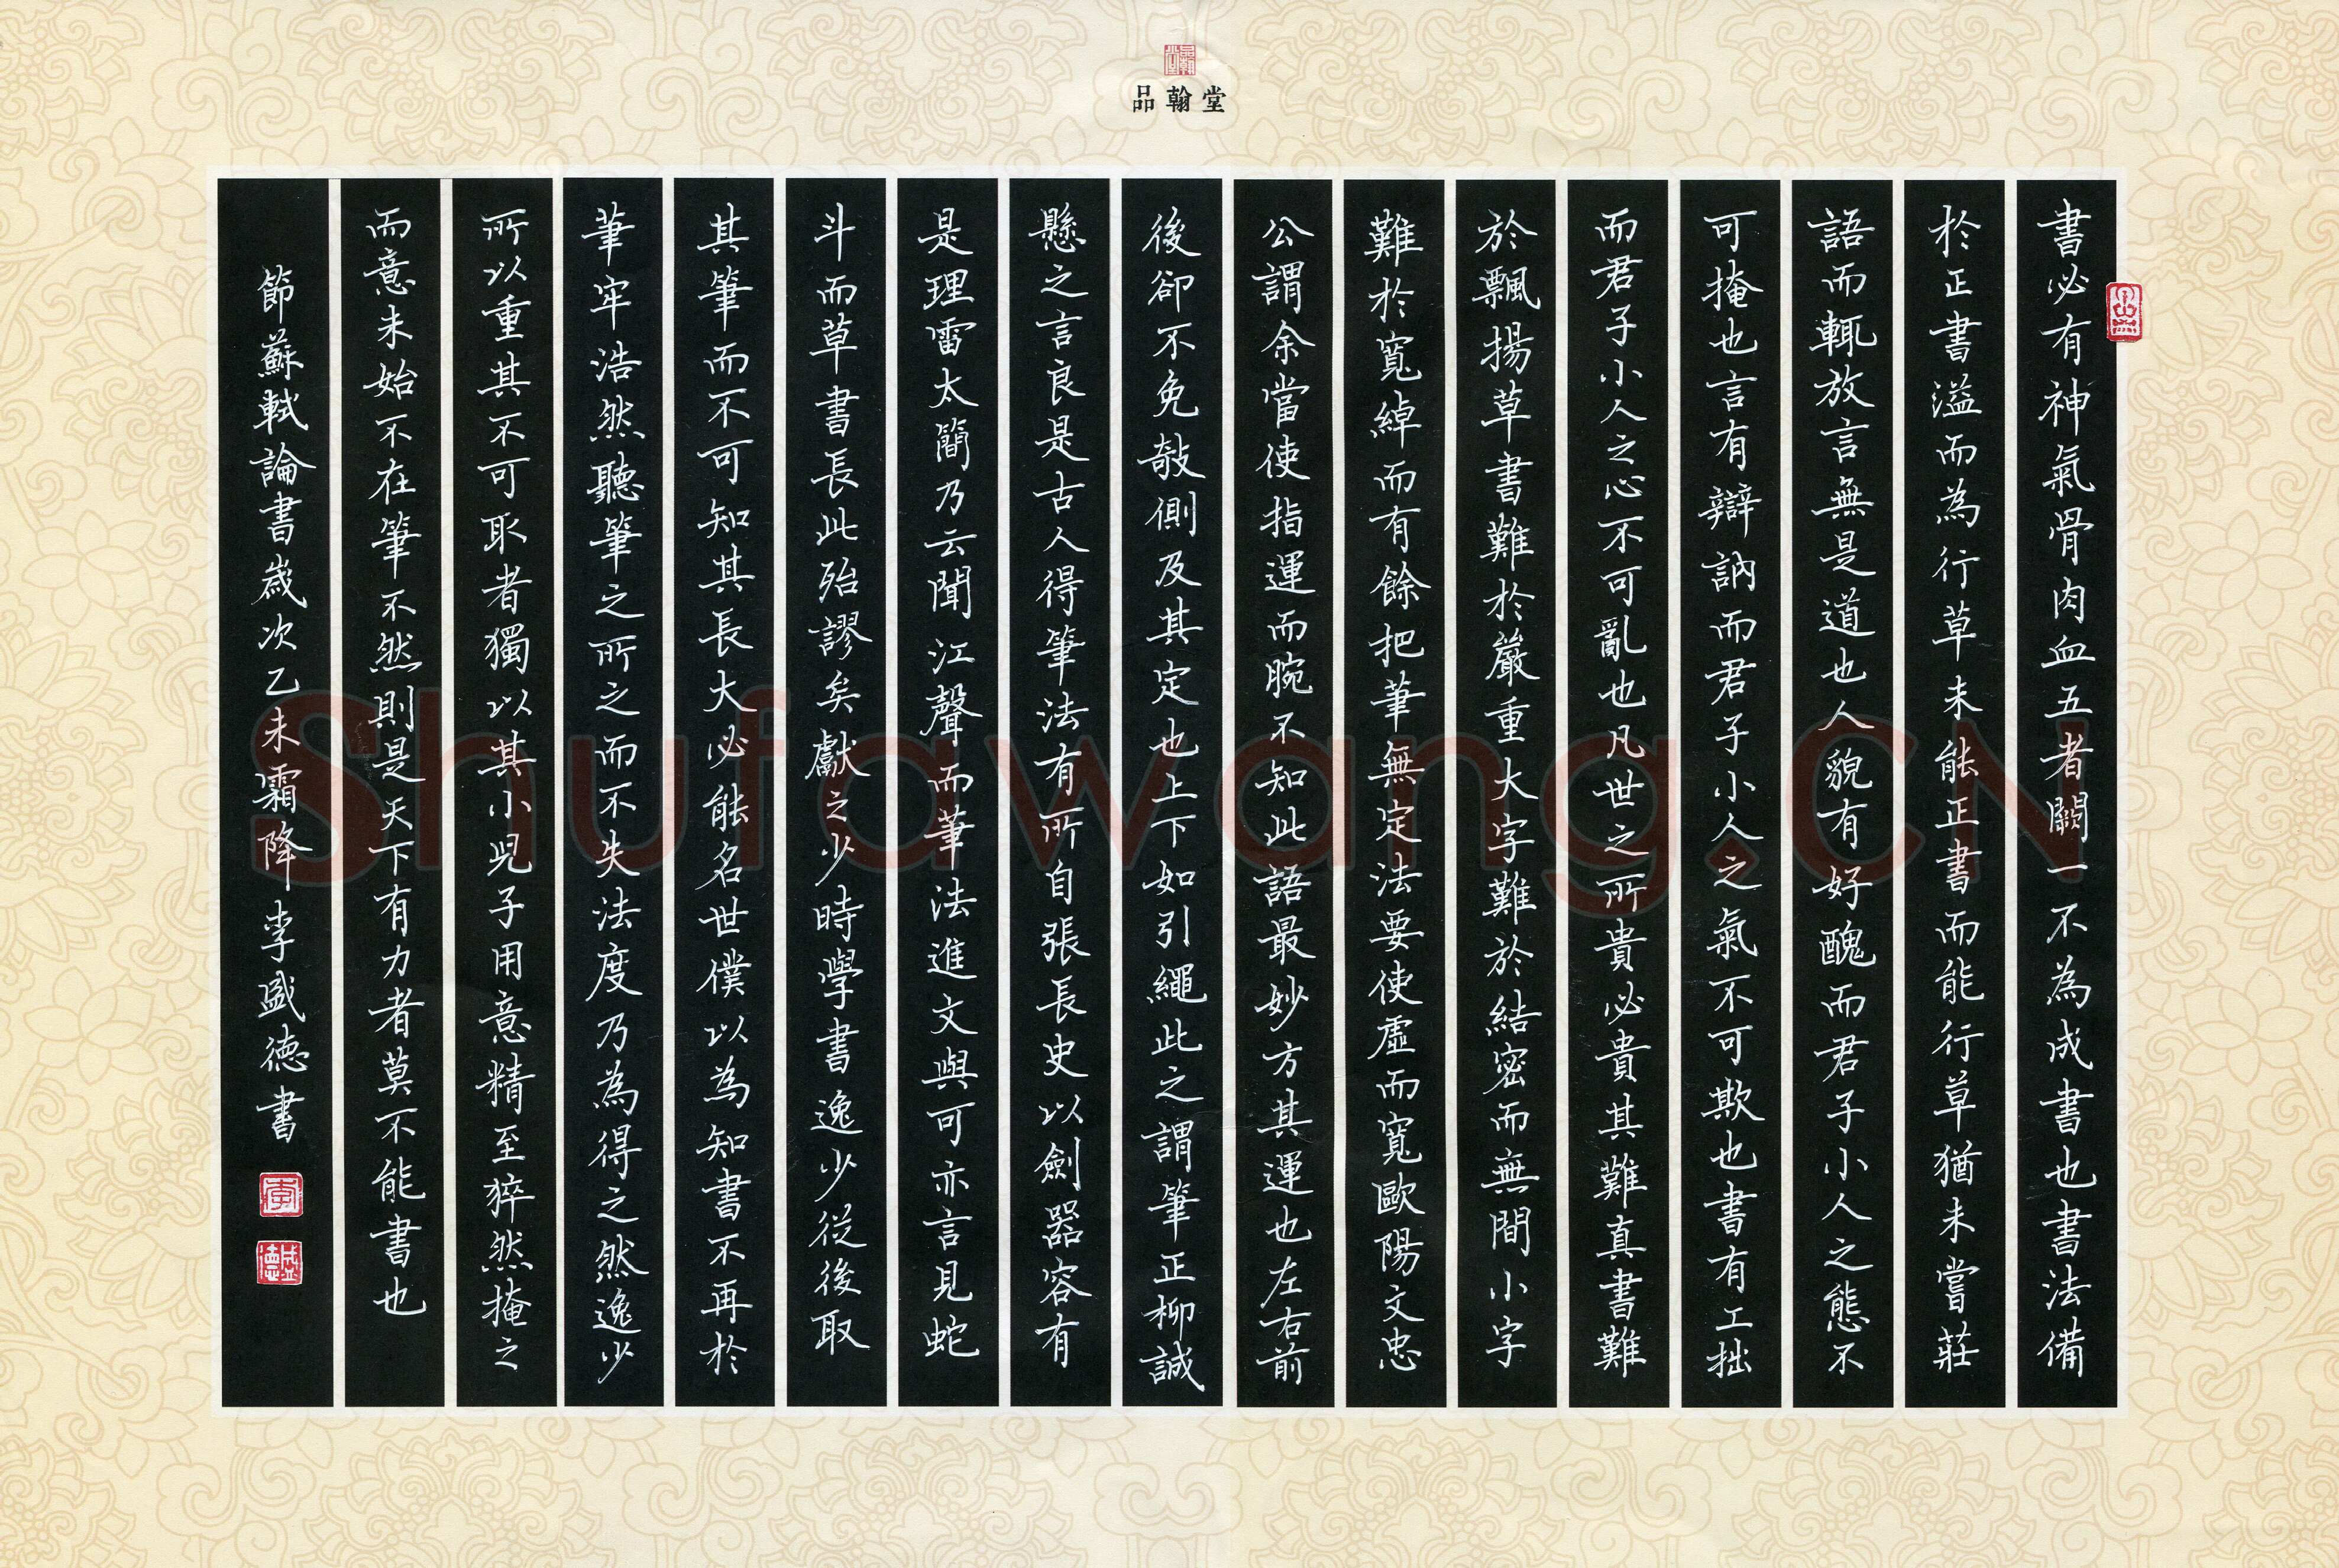 品翰堂
書必有神氣骨肉血五者闕一不為成書也書法備
於正書溢而為行草未能正書而能行草猶未嘗莊
語而輒放言無是道也人貌有好醜而君子小人之態不
可掩也言有辯訥而君子小人之氣不可欺也書有工拙
而君子小人之心不可亂也凡世之所貴必貴其難真書難
於飄揚草書難於嚴重大字難於結密而無間小字
難於寬綽而有餘把筆無定法要使虛而寬歐陽文忠
公謂余當使指運而腕不知此語最妙方其運也左右前
後卻不免攲側及其定也上下如引繩此之謂筆正柳誠
懸之言良是古人得筆法有所自張長史以劍器容有
是理雷太簡乃云聞江聲而筆法進文與可亦言見蛇
斗而草書長此殆謬矣獻之少時學書逸少從後取
其筆而不可知其長大必能名世僕以為知書不再於
筆牢浩然聽筆之所之而不失法度乃為得之然逸少
所以重其不可取者獨以其小兒子用意精至猝然掩之
而意未始不在筆不然則是天下有力者莫不能書也
節蘇軾論書歲次乙未霜降李盛德書
李
盛德
Shufawang.CN